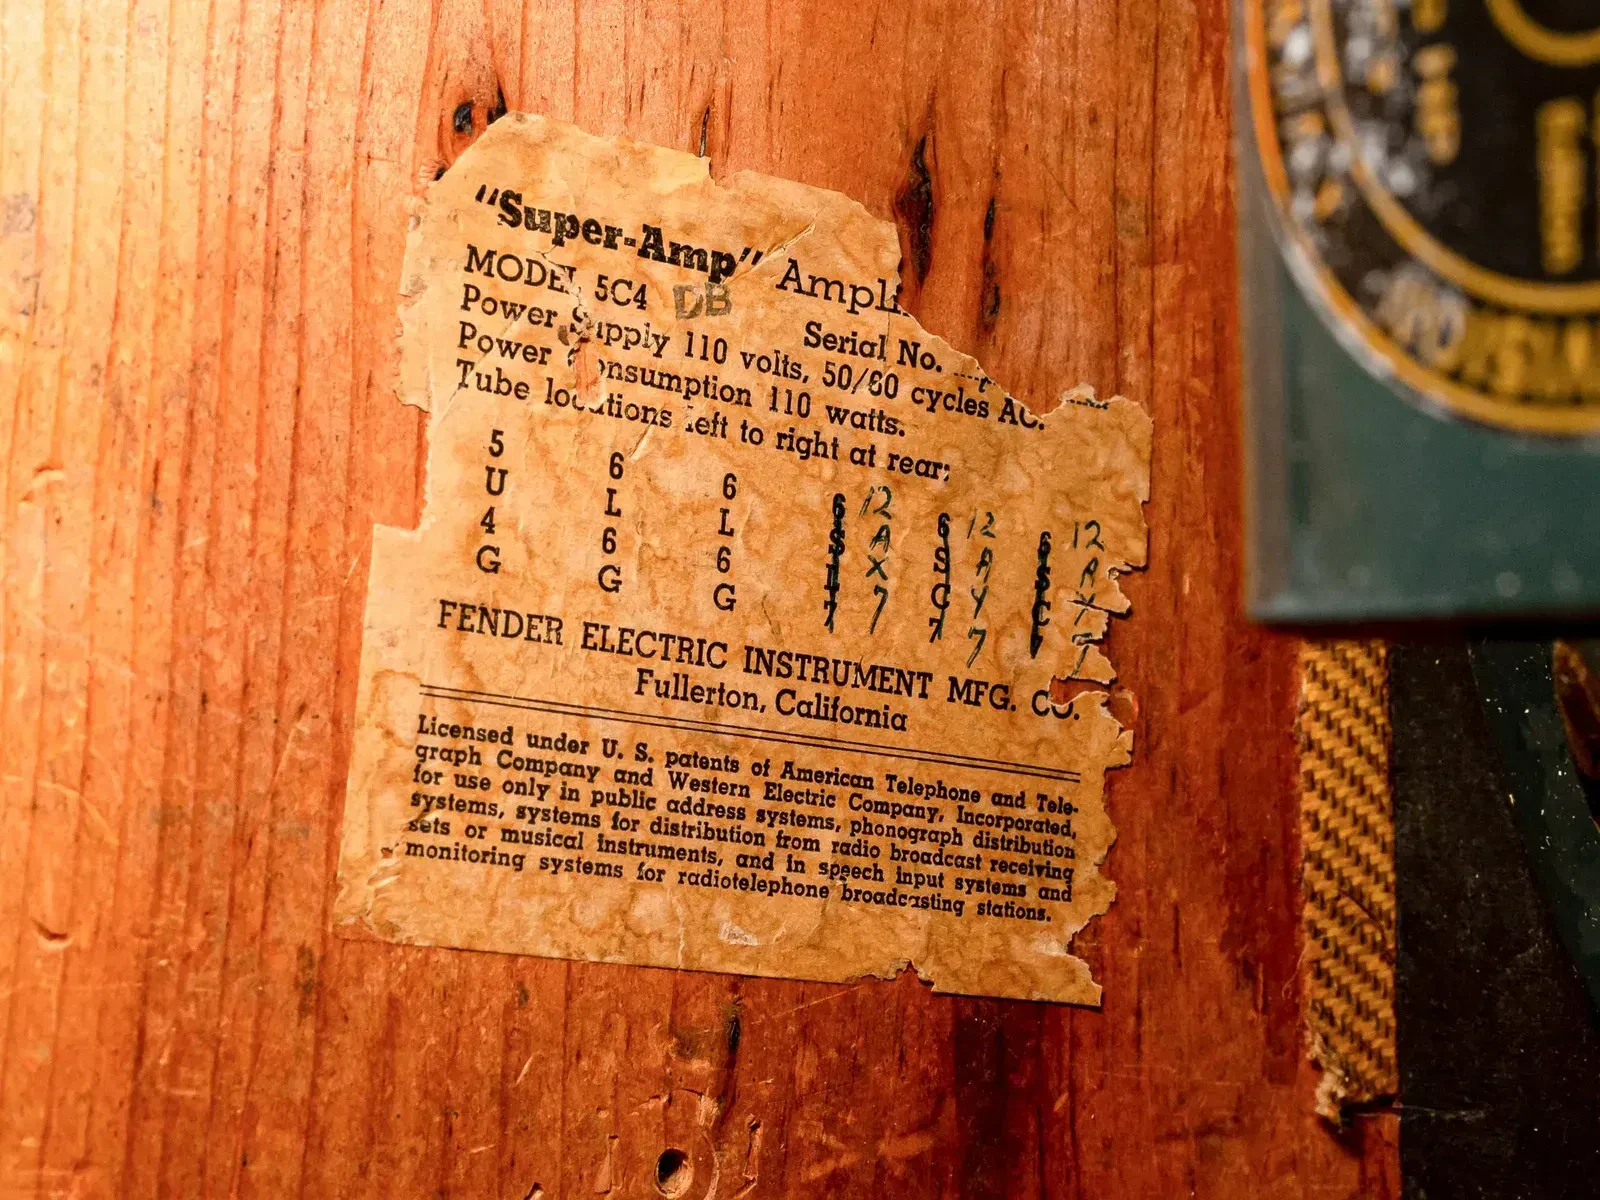 "Super-Amp" Ampli
MODEL 5C4 DB
Serial No.
Power Supply 110 volts, 50/60 cycles AC.
Power Consumption 110 watts.
Tube locations left to right at rear:
5 6 6 6 12 6 12 6 12
U L L S A S A S A
4 6 6 L X C Y C Y
G G G 7 7 7 7 7 7
FENDER ELECTRIC INSTRUMENT MFG. CO.
Fullerton, California
Licensed under U. S. patents of American Telephone and Tele-
graph Company and Western Electric Company, Incorporated,
for use only in public address systems, phonograph distribution
systems, systems for distribution from radio broadcast receiving
sets or musical instruments, and in speech input systems and
monitoring systems for radiotelephone broadcasting stations.